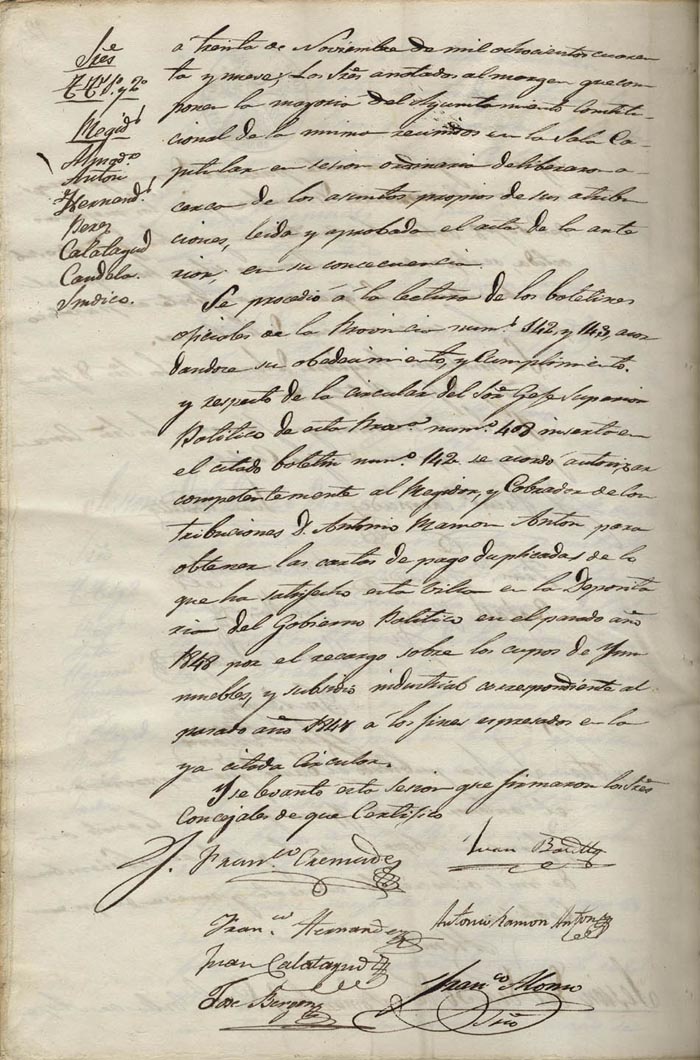 Sres
TTes 1º y 2º
Regids
Almodr
Anton
Hernands
Perez
Calatayud
Candela.
Sindico.
á treinta de Noviembre de mil ochocientos cuaren
ta y nueve; Los Sres anotados al margen que com
ponen la mayoria del Ayuntamiento Constitu
cional de la misma reunidos en la Sala Ca-
pitular en sesion ordinaria deliberaro a-
cerca de los asuntos propios de sus atribu
ciones, leida y aprobada el acta de la ante
rior, en su concecuencia.
Se procedió á la lectura de los boletines
oficiales de la Provincia nums 142, y 143, acor
dandose su obedecimiento, y Cumplimiento.
y respecto de la circular del Sor Gefe Superior
Politico de esta Prova numo 408 inserta en
el citado boletin numo 142 se acordó autorizar
competentemente al Regidor, y Cobrador de Con
tribuciones D. Antonio Ramon Anton para
obtener las cartas de pago duplicadas de lo
que ha satisfecho esta villa en la Deposita
ria del Gobierno Politico en el pasado año
1848 por el recargo sobre los cupos de Ynm
muebles, y subsidio industrial correspondiente al
pasado año 1848 a los fines espresados en la
ya citada Circular.
Y se levanto esta sesion que firmaron los Sres
Concejales de que Certifico
J. Franco Cremades
Juan
Franco Hernandez
Antonio Ramon Anton
Juan Calatayud
Jose
Franco Alonso
Srio